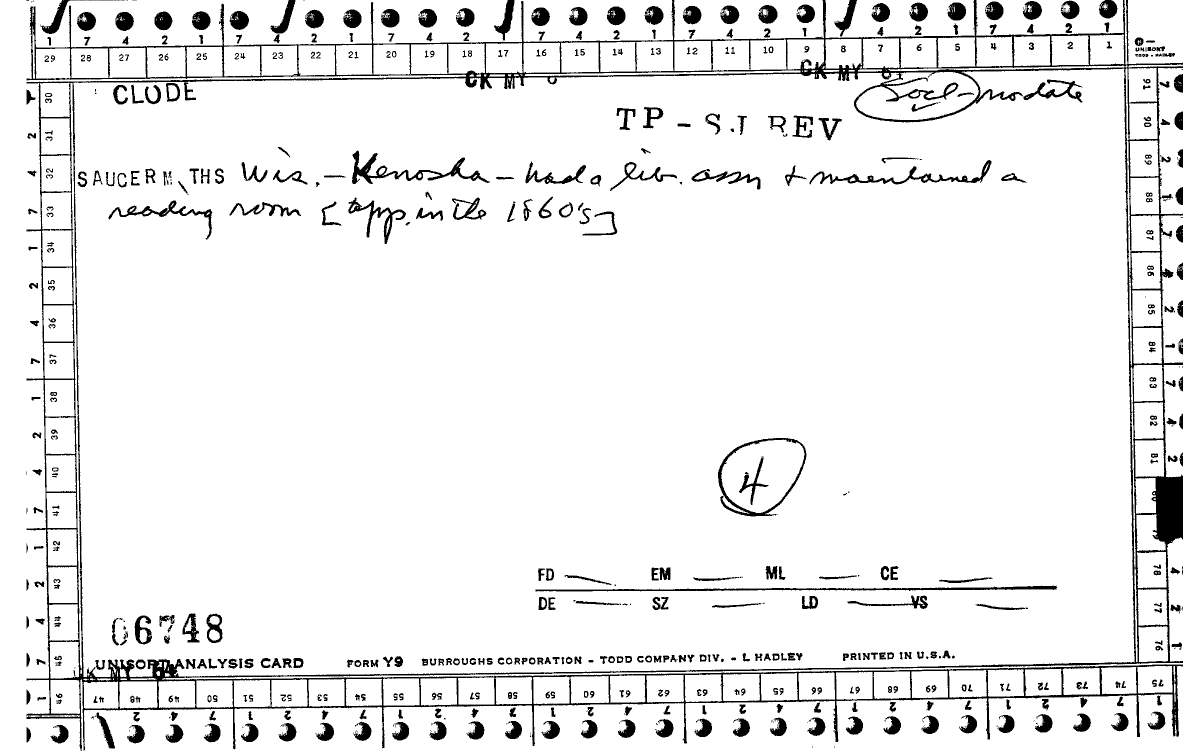 1 7 4 2 1 7 4 2 1 7 4 2 1 7 4 2 1 7 4 2 1 7 4 2 1 7 4 2 1
29 28 27 26 25 24 23 22 21 20 19 18 17 16 15 14 13 12 11 10 9 8 7 6 5 4 3 2 1
UNISORT
TODD - HADLEY
CK MY CK MY
CLODE
Socl - no date
TP - SJ REV
SAUCER M THS Wis. - Kenosha - had a lib. assn + maintained a
reading room [app. in the 1860's]
4
FD EM ML CE
DE SZ LD VS
06748
UNISORT ANALYSIS CARD FORM Y9 BURROUGHS CORPORATION - TODD COMPANY DIV. - L HADLEY PRINTED IN U.S.A.
CK MY 64
30 31 32 33 34 35 36 37 38 39 40 41 42 43 44 45 46
47 48 49 50 51 52 53 54 55 56 57 58 59 60 61 62 63 64 65 66 67 68 69 70 71 72 73 74 75
91 90 89 88 87 86 85 84 83 82 81 80 79 78 77 76